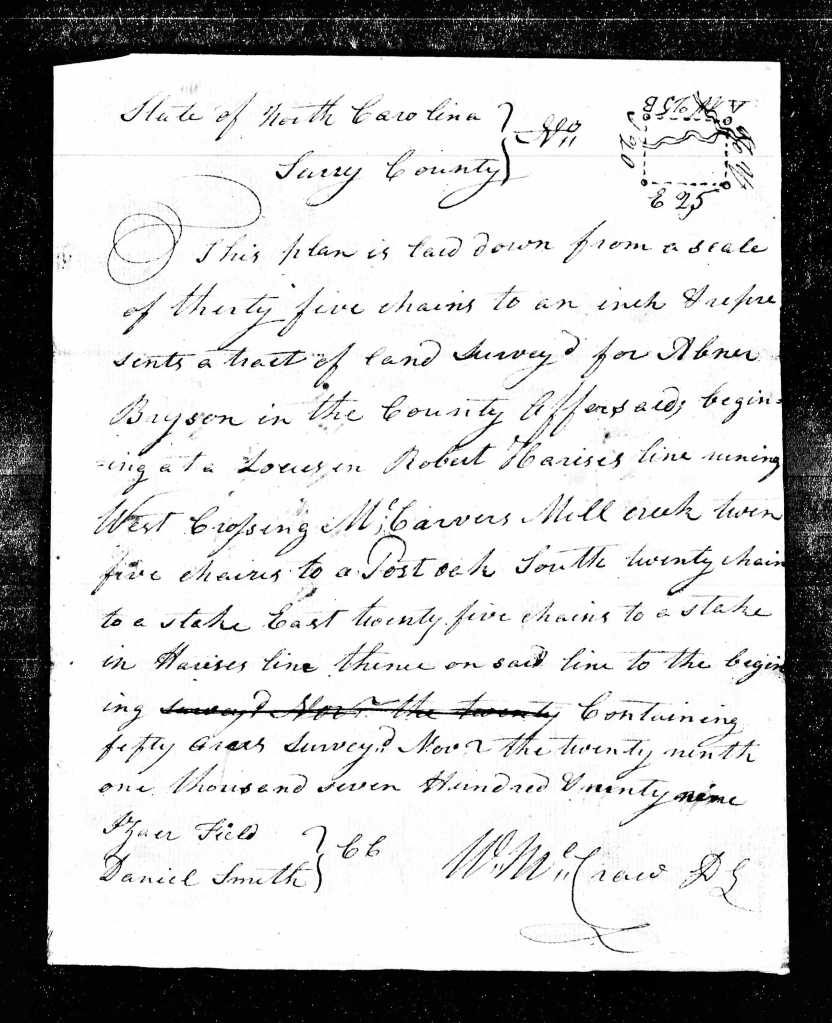 State of North Carolina } No
Surry County
E 25
This plan is laid down from a scale
of therty five chains to an inch & repre
sents a tract of land Survey'd for Abner
Bryson in the County Afforsaid; begin=
=ing at a Locus in Robert Harises line runing
West Crossing Mc Carvers Mill creek twen
five chaires to a Post oak South twenty chain
to a stake East twenty five chains to a stake
in Harises line thence on said line to the begin
ing survay'd Novr the twenty Containing
fifty acres Survey'd Novr the twenty ninth
one thousand seven Hundred & ninty nine
Field
Daniel Smith } CC
Wm Mc Craw DS